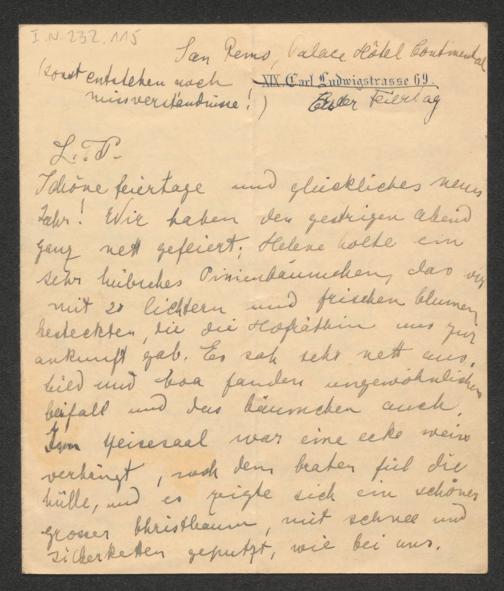 I.N. 232.115
San Remo, Palace Hôtel Continental
(sonst entstehen noch
XIX. Carl Ludwigstrasse 69.
missverständnisse!)
Erster Feiertag
L. P.
Schöne feiertage und glückliches neues
Jahr! Wir haben den gestrigen abend
ganz nett gefeiert; Helene holte ein
sehr hübsches Pinienbäumchen, das wir
mit 20 lichtern und frischen blumen
besteckten, die die Hofräthin uns zur
ankunft gab. Es sah sehr nett aus,
bild und boa fanden ungewöhnlichen
beifall und das bäumchen auch.
Im speisesaal war eine ecke weiss
verhängt, nach dem braten fiel die
hülle, und es zeigte sich ein schöner
grosser Christbaum, mit schnee und
zuckerketten geputzt, wie bei uns.